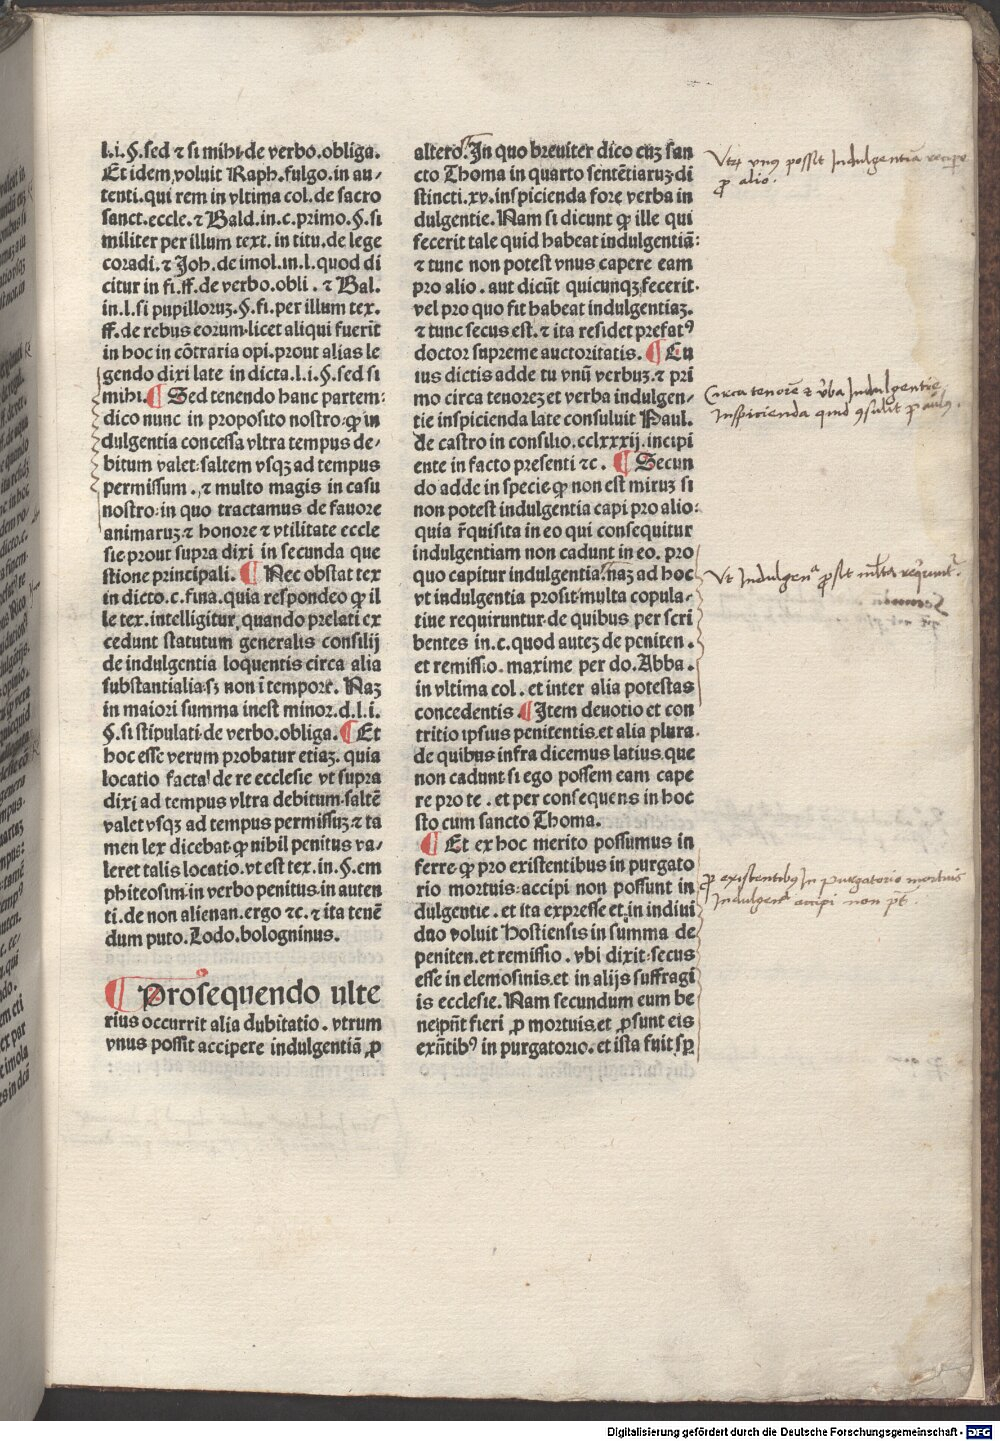 l.i.§.sed ⁊ si mihi.de verbo.obliga.
Et idem voluit Raph.fulgo.in au⸗
tenti.qui rem in vltima col.de sacro
sanct.eccle.⁊ Bald.in.c.primo.§.si
militer per illum text.in titu.de lege
coradi.⁊ Joh.de imol.in.l.quod di
citur in fi.ff.de verbo.obli. ⁊ Bal.
in.l.si pupilloruꝫ.§.fi.per illum tex.
ff.de rebus eorum.licet aliqui fuerīt
in hoc in cōtraria opi.prout alias le
gendo dixi late in dicta.l.i.§.sed si
mihi.¶ Sed tenendo hanc partem:
dico nunc in proposito nostro:ꝙ in
dulgentia concessa vltra tempus de⸗
bitum valet.saltem vsqꝫ ad tempus
permissum.,⁊ multo magis in casu
nostro:in quo tractamus de fauore
animaruꝫ.⁊ honore ⁊ vtilitate eccle
sie prout supra dixi in secunda que
stione principali. ¶ Nec obstat tex
in dicto.c.fina.quia respondeo ꝙ il
le tex.intelligitur,quando prelati ex
cedunt statutum generalis consilij
de indulgentia loquentis circa alia
substantialia.sꝫ non ī tempore. Naꝫ
in maiori summa inest minor.d.l.i.
§.si stipulati.de verbo.obliga.¶ Et
hoc esse verum probatur etiaꝫ. quia
locatio facta de re ecclesie vt supra
dixi ad tempus vltra debitum.saltē
valet vsqꝫ ad tempus permissuꝫ ⁊ ta
men lex dicebat.ꝙ nihil penitus va⸗
leret talis locatio.vt est tex.in.§.em
phiteosim.in verbo penitus.in auten
ti.de non alienan.ergo ⁊c.⁊ ita tenē
dum puto.Lodo.bologninus.
¶ Prosequendo vlte
rius occurrit alia dubitatio. vtrum
vnus possit accipere indulgentiā ꝓ
altero.Jn quo breuiter dico cuꝫ san
cto Thoma in quarto sentētiaruꝫ.di
stincti.xv.inspicienda fore verba in
dulgentie. Nam si dicunt ꝙ ille qui
fecerit tale quid habeat indulgentiā:
⁊ tunc non potest vnus capere eam
pro alio. aut dicūt quicunqꝫ fecerit.
vel pro quo fit habeat indulgentiaꝫ.
⁊ tunc secus est.⁊ ita residet prefatꝰ
doctor supreme auctoritatis. ¶ Eu
ius dictis adde tu vnū verbuꝫ.⁊ pri
mo circa tenoreꝫ et verba indulgen⸗
tie inspicienda late consuluit Paul.
de castro in consilio.cclxxxij.incipi
ente in facto presenti ⁊c. ¶ Secun
do adde in specie ꝙ non est miruꝫ si
non potest indulgentia capi pro alio:
quia r̄quisita in eo qui consequitur
indulgentiam non cadunt in eo. pro
quo capitur indulgentia.naꝫ ad hoc
vt indulgentia prosit.multa copula⸗
tiue requiruntur.de quibus per scri
bentes in.c.quod auteꝫ de peniten.
et remissio. maxime per do.Abba.
in vltima col. et inter alia potestas
concedentis.¶ Jtem deuotio et con
tritio ipsius penitentis.et alia plura.
de quibus infra dicemus latius.que
non cadunt si ego possem eam cape
re pro te. et per consequens in hoc
sto cum sancto Thoma.
¶ Et ex hoc merito possumus in
ferre ꝙ pro existentibus in purgato
rio mortuis accipi non possunt in
dulgentie. et ita expresse et in indiui
duo voluit Hostiensis in summa de
peniten.et remissio. vbi dixit secus
esse in elemosinis.et in alijs suffragi
is ecclesie. Nam secundum eum be
ne pn̄t fieri ꝓ mortuis.et ꝓsunt eis
exn̄tibꝰ in purgatorio. et ista fuit sꝑ
Vtrꝫ vnus possit Indulgentiā recipe
ꝓ alio.
Circa tenorē ⁊ v̄ba Indulgentie
Inspicienda quid ꝯsulit paulꝰ.
Vt Indulgenᵃ ꝓsit mlta requiruntʳ.
ꝓ existentibꝰ In purgatorio mortuis
Indulgenᵃ accipi non pt̄.
Digitalisierung gefördert durch die Deutsche Forschungsgemeinschaft - DFG